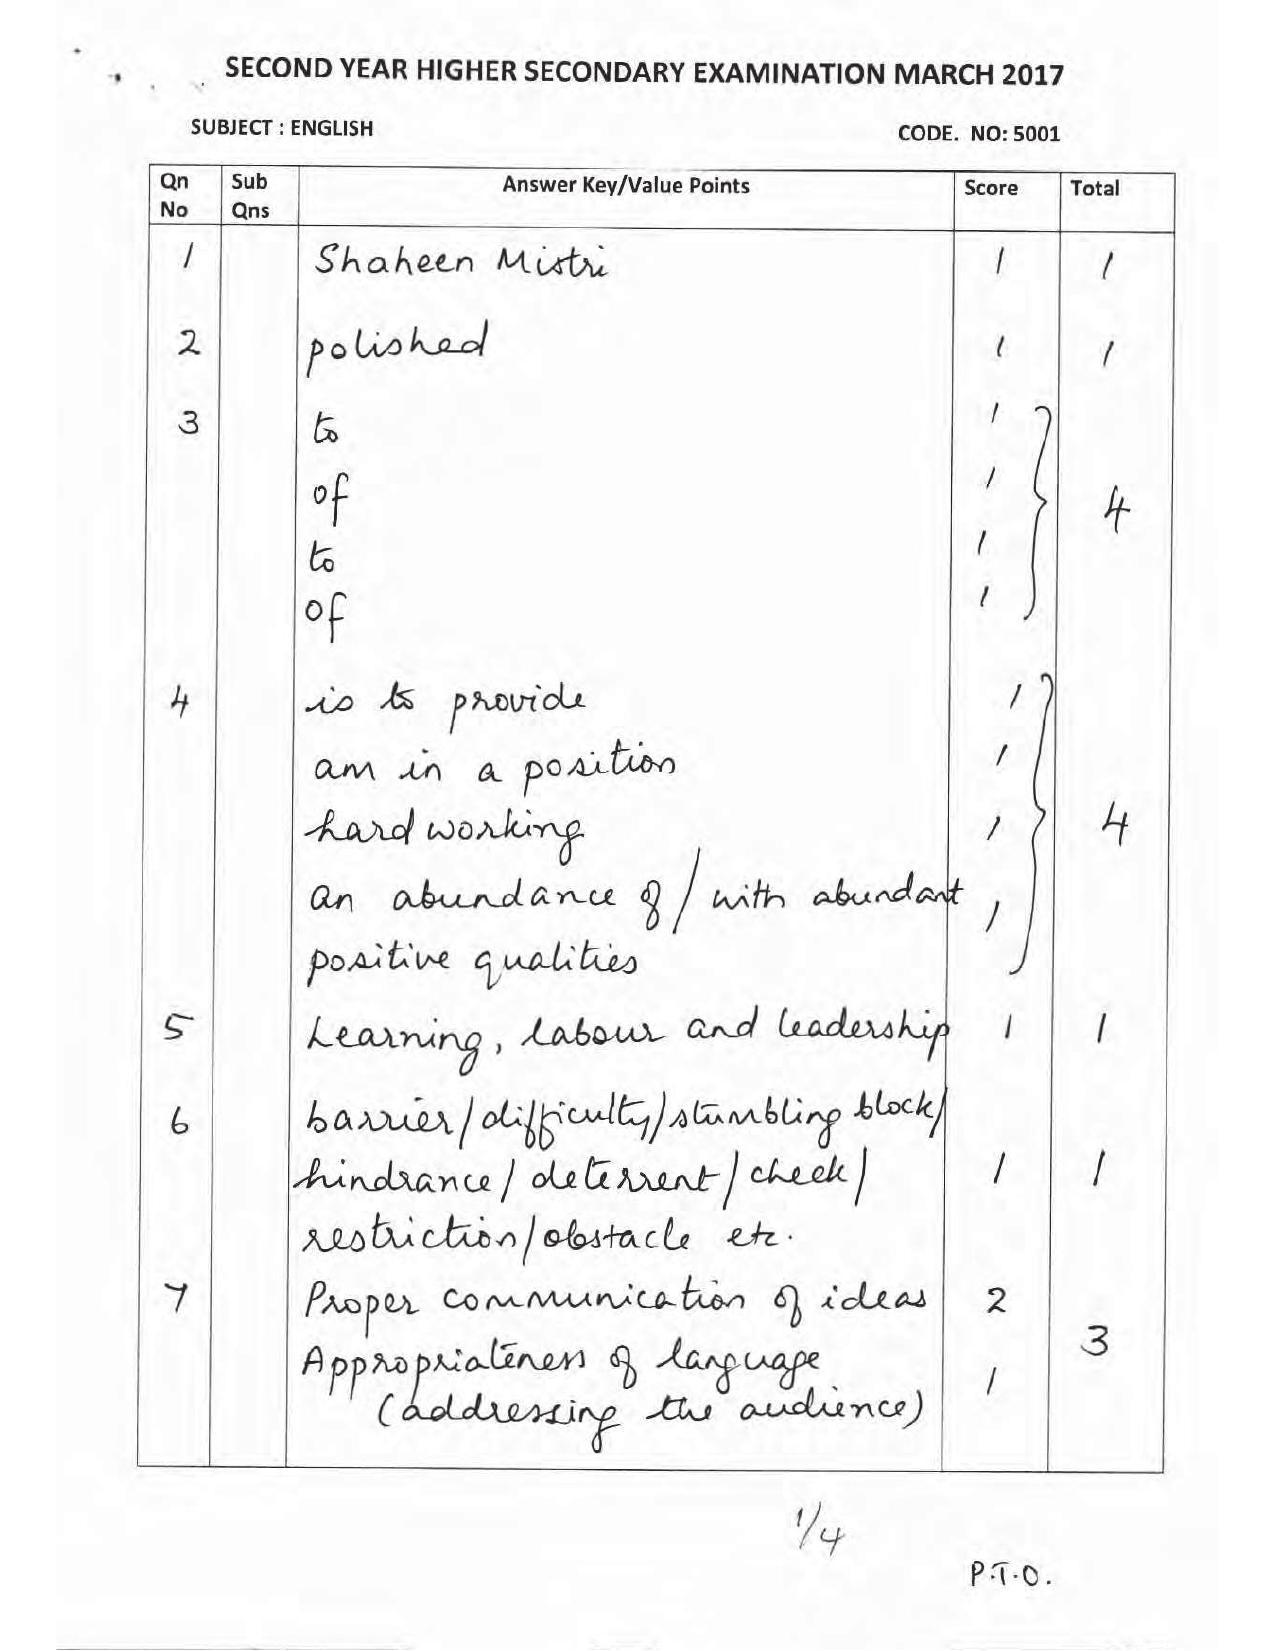 SECOND YEAR HIGHER SECONDARY EXAMINATION MARCH 2017
SUBJECT : ENGLISH CODE. NO: 5001
Qn No Sub Qns Answer Key/Value Points Score Total
1 Shaheen Mistri 1 1
2 polished 1 1
3 to 1
of 1
4
to 1
of 1
4 is to provide 1
am in a position 1
hardworking 1 4
an abundance of / with abundant 1
positive qualities
5 Learning, labour and leadership 1 1
6 barrier/difficulty/stumbling block/
hindrance/ deterrent/ check/ 1 1
restriction/obstacle etc.
7 Proper communication of ideas 2
3
Appropriateness of language 1
(addressing the audience)
1/4
P.T.O.